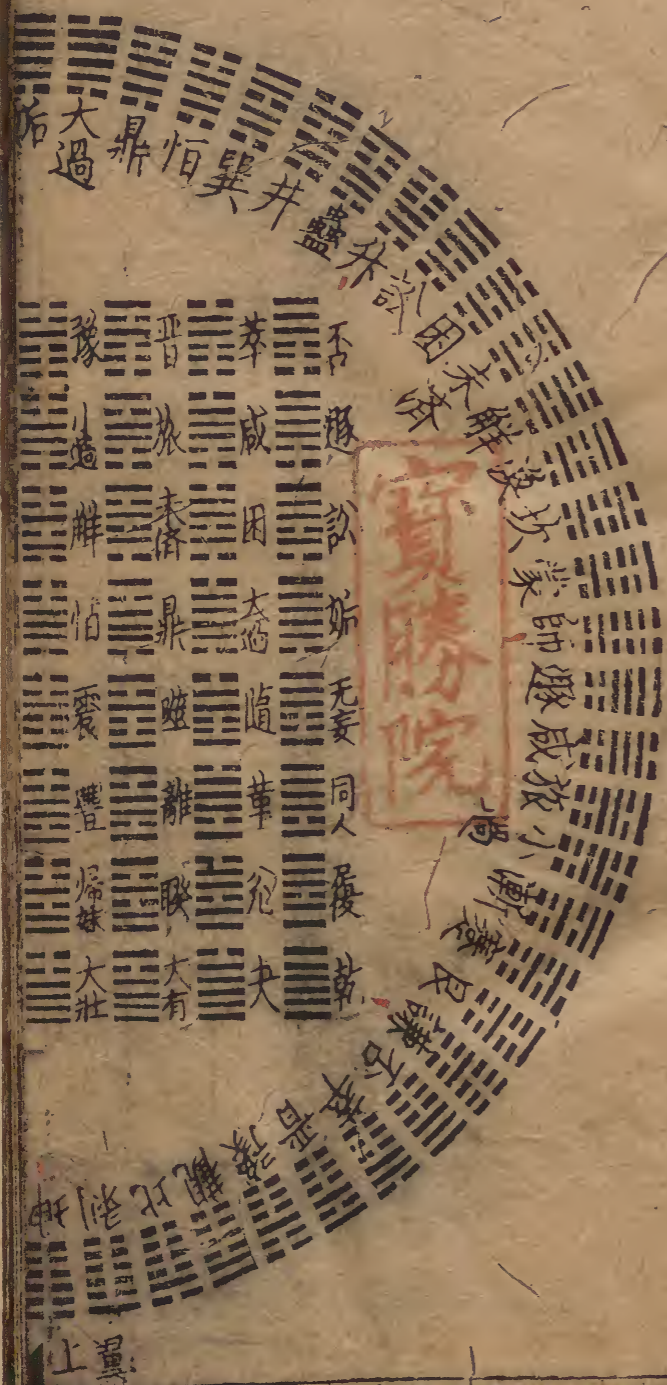 姤
大過
鼎
恒
巽
井
蠱
升
訟
困
未済
解
渙
坎
蒙
師
遯
咸
旅
小過
漸
蹇
艮
謙
否
萃
晋
豫
觀
比
剥
坤
否
遯
訟
姤
无妄
同人
履
乾
萃
咸
困
大過
革
兊
夬
晋
旅
未済
鼎
噬
離
睽
大有
豫
小過
解
恒
震
豐
帰妹
大壮
寳勝院
翼上